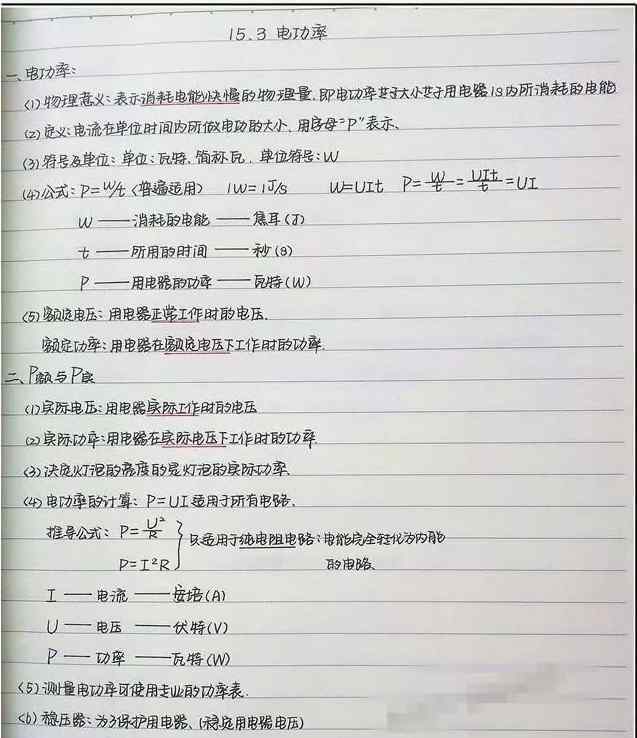 15.3 电功率
一、电功率:
(1) 物理意义:表示消耗电能快慢的物理量,即电功率等于大小等于用电器1s内所消耗的电能
(2) 定义:电流在单位时间内所做电功的大小,用字母“P”表示、
(3) 符号及单位:单位:瓦特、简称瓦,单位符号:W
(4) 公式:P=W/t (普遍适用) 1W=1J/s W=UIt P=W/t=UIt/t=UI
W —— 消耗的电能 —— 焦耳(J)
t —— 所用的时间 —— 秒(s)
P —— 用电器的功率 —— 瓦特(W)
(5) 额定电压:用电器正常工作时的电压.
额定功率:用电器在额定电压下工作时的功率.
二、P额与P实
(1) 实际电压:用电器实际工作时的电压
(2) 实际功率:用电器在实际电压下工作时的功率
(3) 决定灯泡的亮度的是灯泡的实际功率、
(4) 电功率的计算:P=UI适用于所有电路.
推导公式:P=U²/R
P=I²R
只适用于纯电阻电路:电能完全转化为内能
的电路、
I —— 电流 —— 安培(A)
U —— 电压 —— 伏特(V)
P —— 功率 —— 瓦特(W)
(5) 测量电功率可使用专业的功率表.
(6) 稳压器:为了保护用电器、(稳定用电器电压)